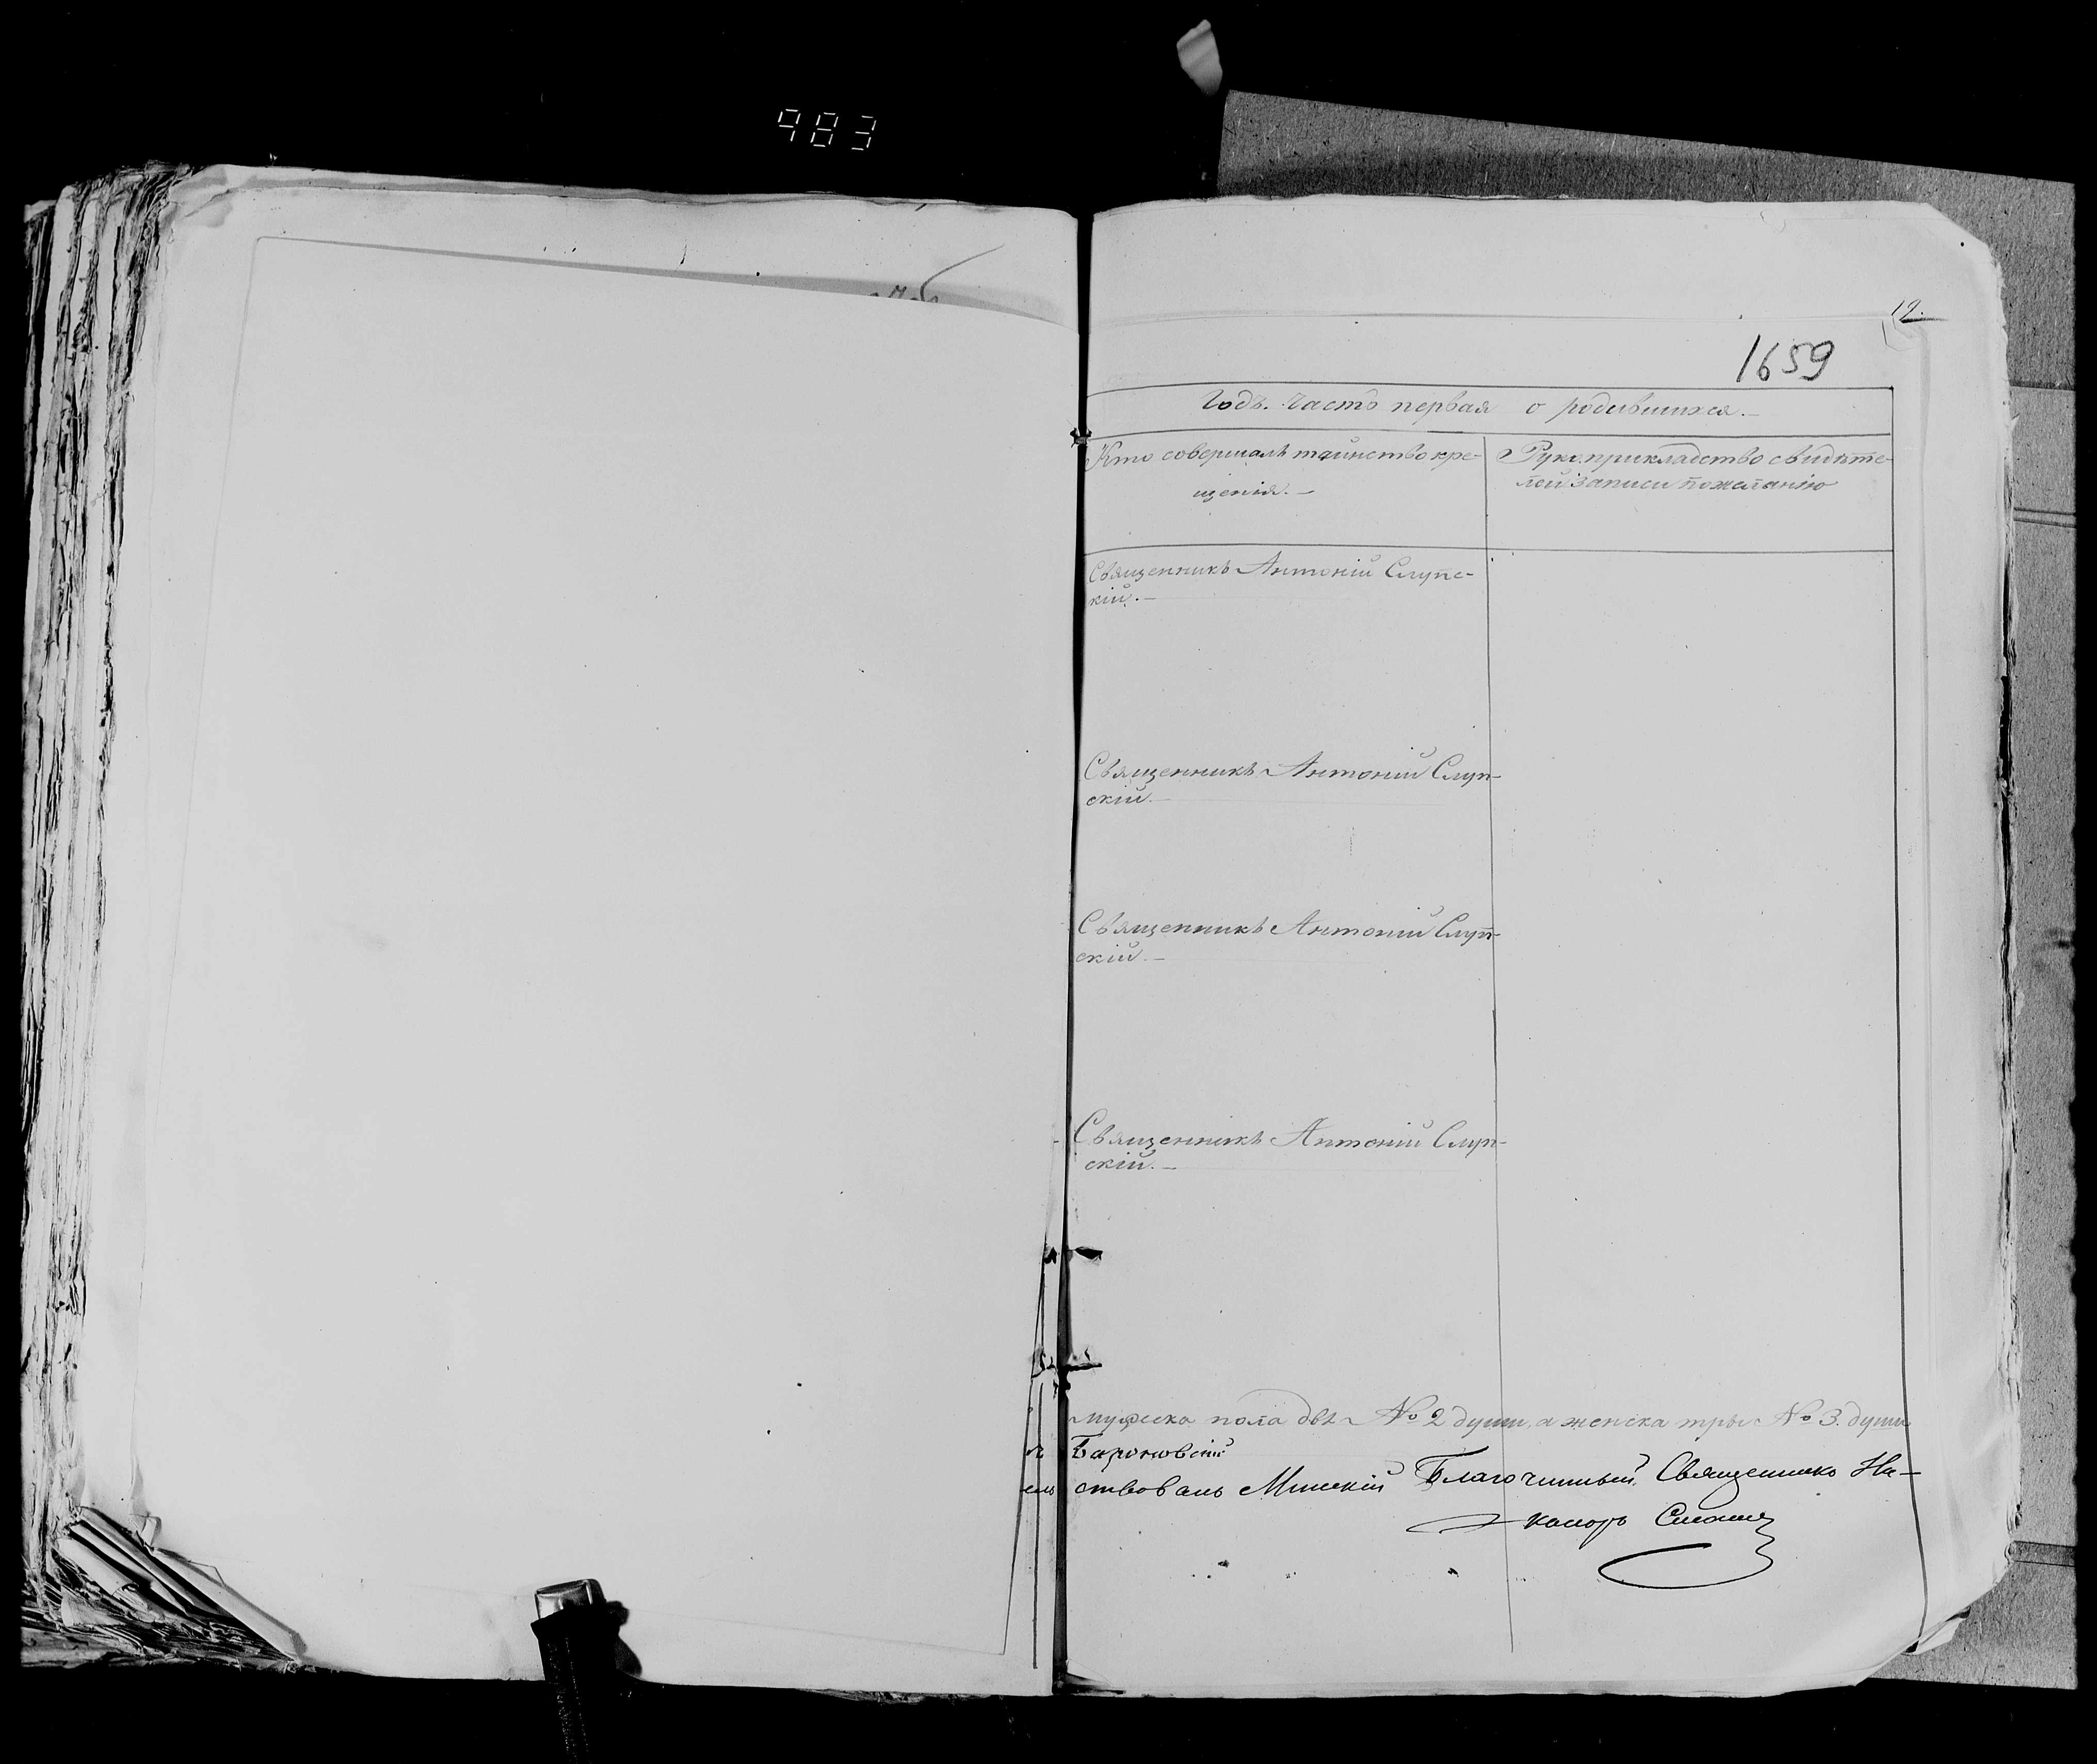 983
12.
1659
Годъ. Часть первая о родившихся.—
Кто совершалъ таинство кре-
щенія.—
Рукоприкладство свидѣте-
лей записи по желанію
Священникъ Антоній Слупс-
кій.—
Священникъ Антоній Слуп-
скій.—
Священникъ Антоній Слуп-
скій.—
Священникъ Антоній Слуп-
скій.—
мужеска пола двѣ № 2 души, а женска тры № 3. души
Бароновскій
ствовалъ Минскій Благочинный Священникъ Ни-
каноръ